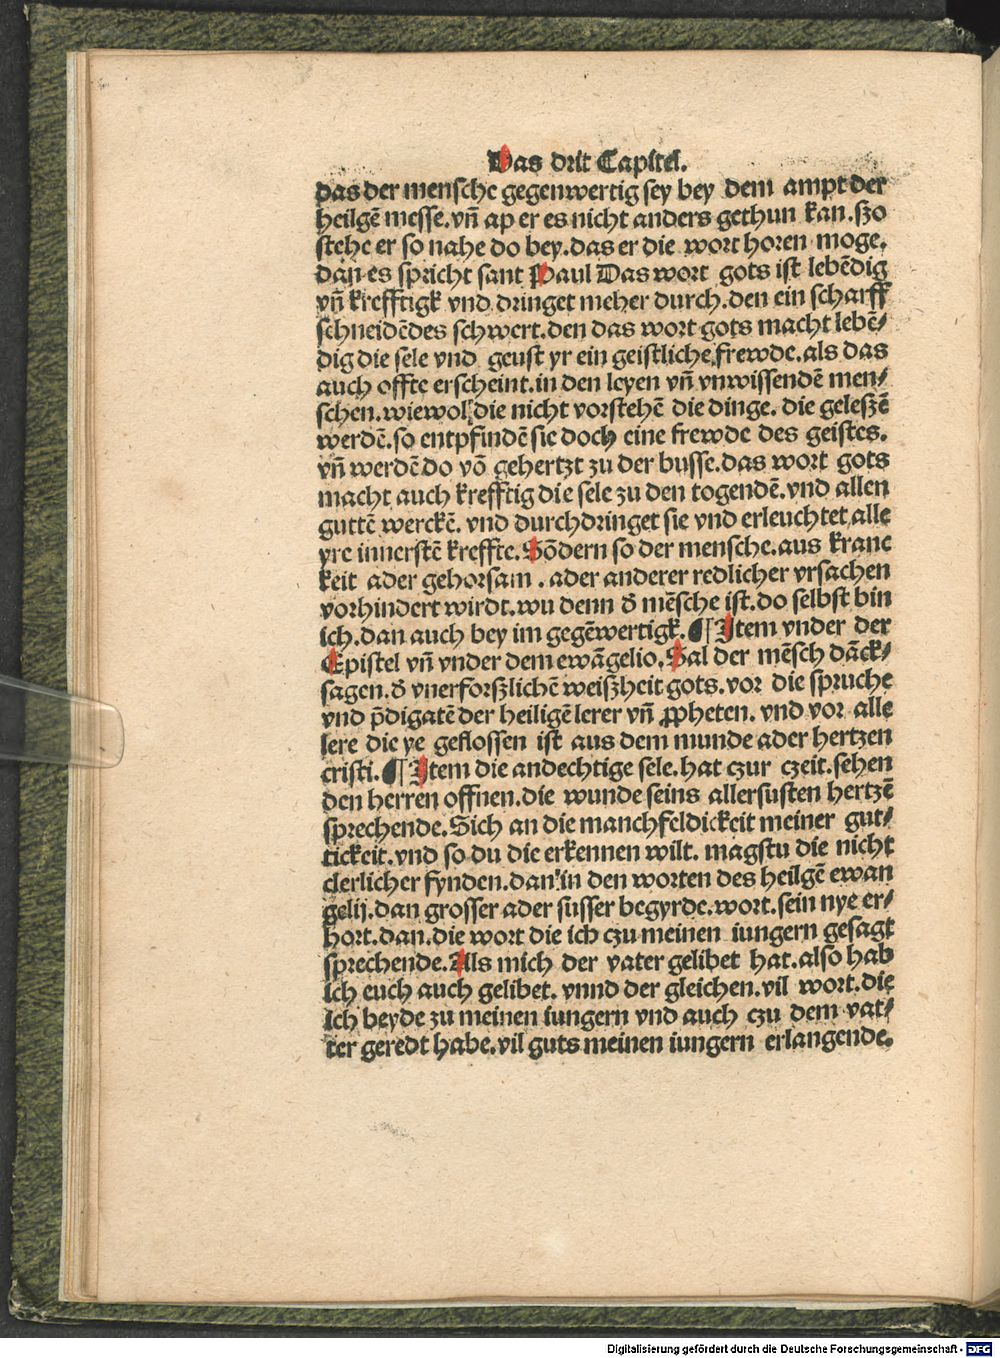 Das drit Capitel.
das der mensche gegenwertig sey bey dem ampt der
heilgē messe.vn̄ ap er es nicht anders gethun kan.ſzo
stehe er so nahe do bey.das er die wort horen moge.
dan es spricht sant Paul Das wort gots ist lebēdig
vn̄ krefftigk vnd dringet meher durch.den ein scharff
schneidēdes schwert.den das wort gots macht lebē⸗
dig die sele vnd geust yr ein geistliche frewde.als das
auch offte erscheint.in den leyen vn̄ vnwissendē men⸗
schen.wiewol die nicht vorstehē die dinge. die geleszē
werdē.so entpfindē sie doch eine frewde des geistes.
vn̄ werdē do vō gehertzt zu der busse.das wort gots
macht auch krefftig die sele zu den togendē.vnd allen
guttē werckē. vnd durchdringet sie vnd erleuchtet alle
yre innerstē kreffte.Sōdern so der mensche.aus kranc
keit ader gehorsam . ader anderer redlicher vrsachen
vorhindert wirdt.wu denn d̄ mēsche ist.do selbst bin
ich.dan auch bey im gegēwertigk.¶ Item vnder der
Epistel vn̄ vnder dem ewāgelio.Sal der mēsch dāck⸗
sagen.d̄ vnerforszlichē weiszheit gots.vor die spruche
vnd p̄digatē der heiligē lerer vn̄ ꝓpheten. vnd vor alle
lere die ye geflossen ist aus dem munde ader hertzen
cristi.¶ Item die andechtige sele.hat czur czeit.sehen
den herren offnen.die wunde seins allersusten hertzē
sprechende.Sich an die manchfeldickeit meiner gut⸗
tickeit.vnd so du die erkennen wilt. magstu die nicht
clerlicher fynden.dan in den worten des heilgē ewan
gelij.dan grosser ader susser begyrde.wort.sein nye er⸗
hort.dan.die wort die ich czu meinen iungern gesagt
sprechende.Als mich der vater gelibet hat.also hab
ich euch auch gelibet. vnnd der gleichen.vil wort.die
ich beyde zu meinen iungern vnd auch czu dem vat⸗
ter geredt habe.vil guts meinen iungern erlangende.
Digitalisierung gefördert durch die Deutsche Forschungsgemeinschaft - DFG